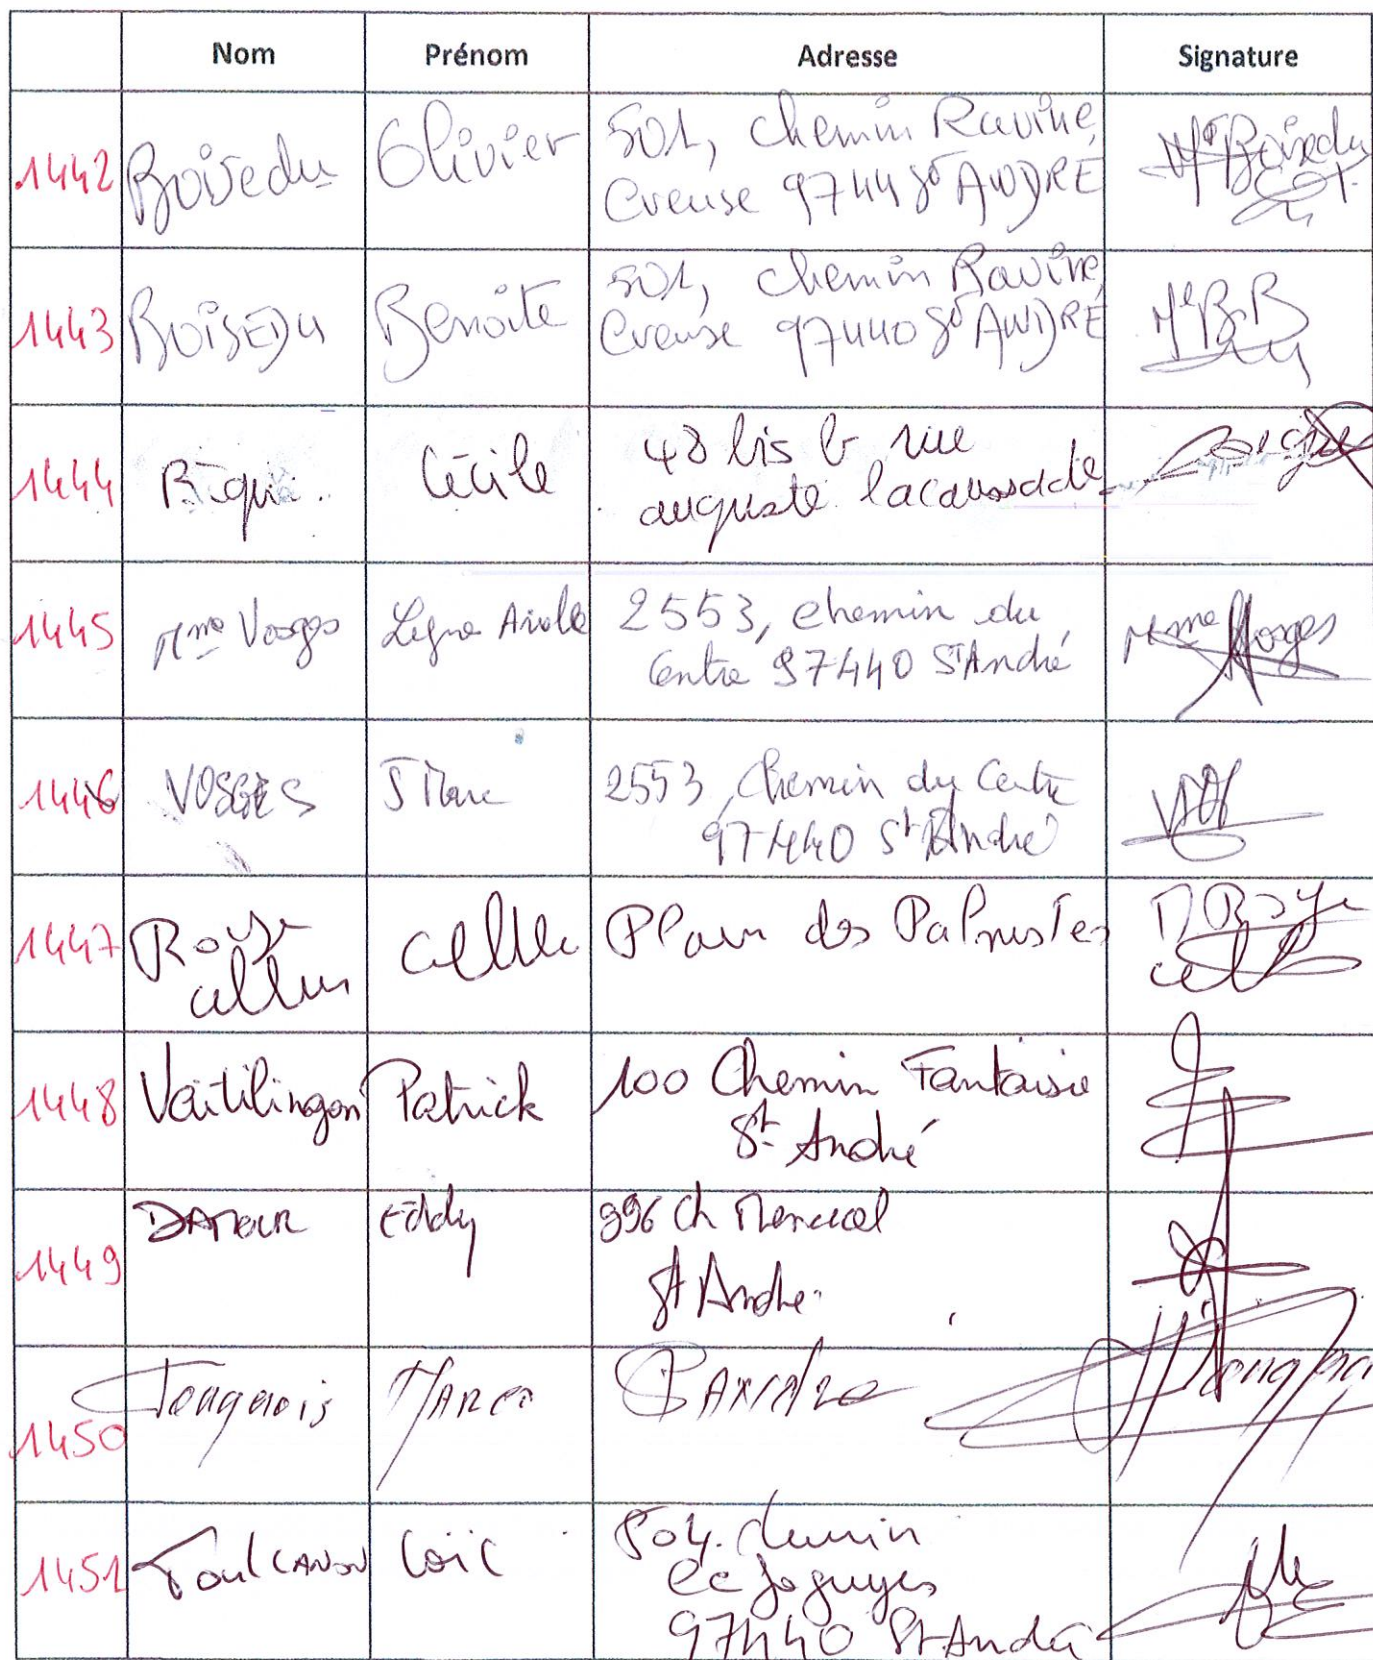 Nom Prénom Adresse Signature
1442 Boisedu Olivier 501, chemin Ravine
Creuse 9744 St ANDRÉ
Boisedu
1443 BOISEDU Benoite 501, chemin Ravine
Creuse 97440 St ANDRÉ
1444 Biqui Cécile 48 bis b rue
auguste lacaussade
1445 Mme Vosges 2553, chemin du
Centre 97440 St André
Mme Vosges
1446 VOSGES J Marc 2553, Chemin du Centre
97440 St André
1447 Plaine des Palmistes
1448 Vaitilingon Patrick 100 Chemin Fantaisie
St André
1449 DAMOUR Eddy 996 Ch
St André
1450
1451 Loïc 504 chemin
97440 St André